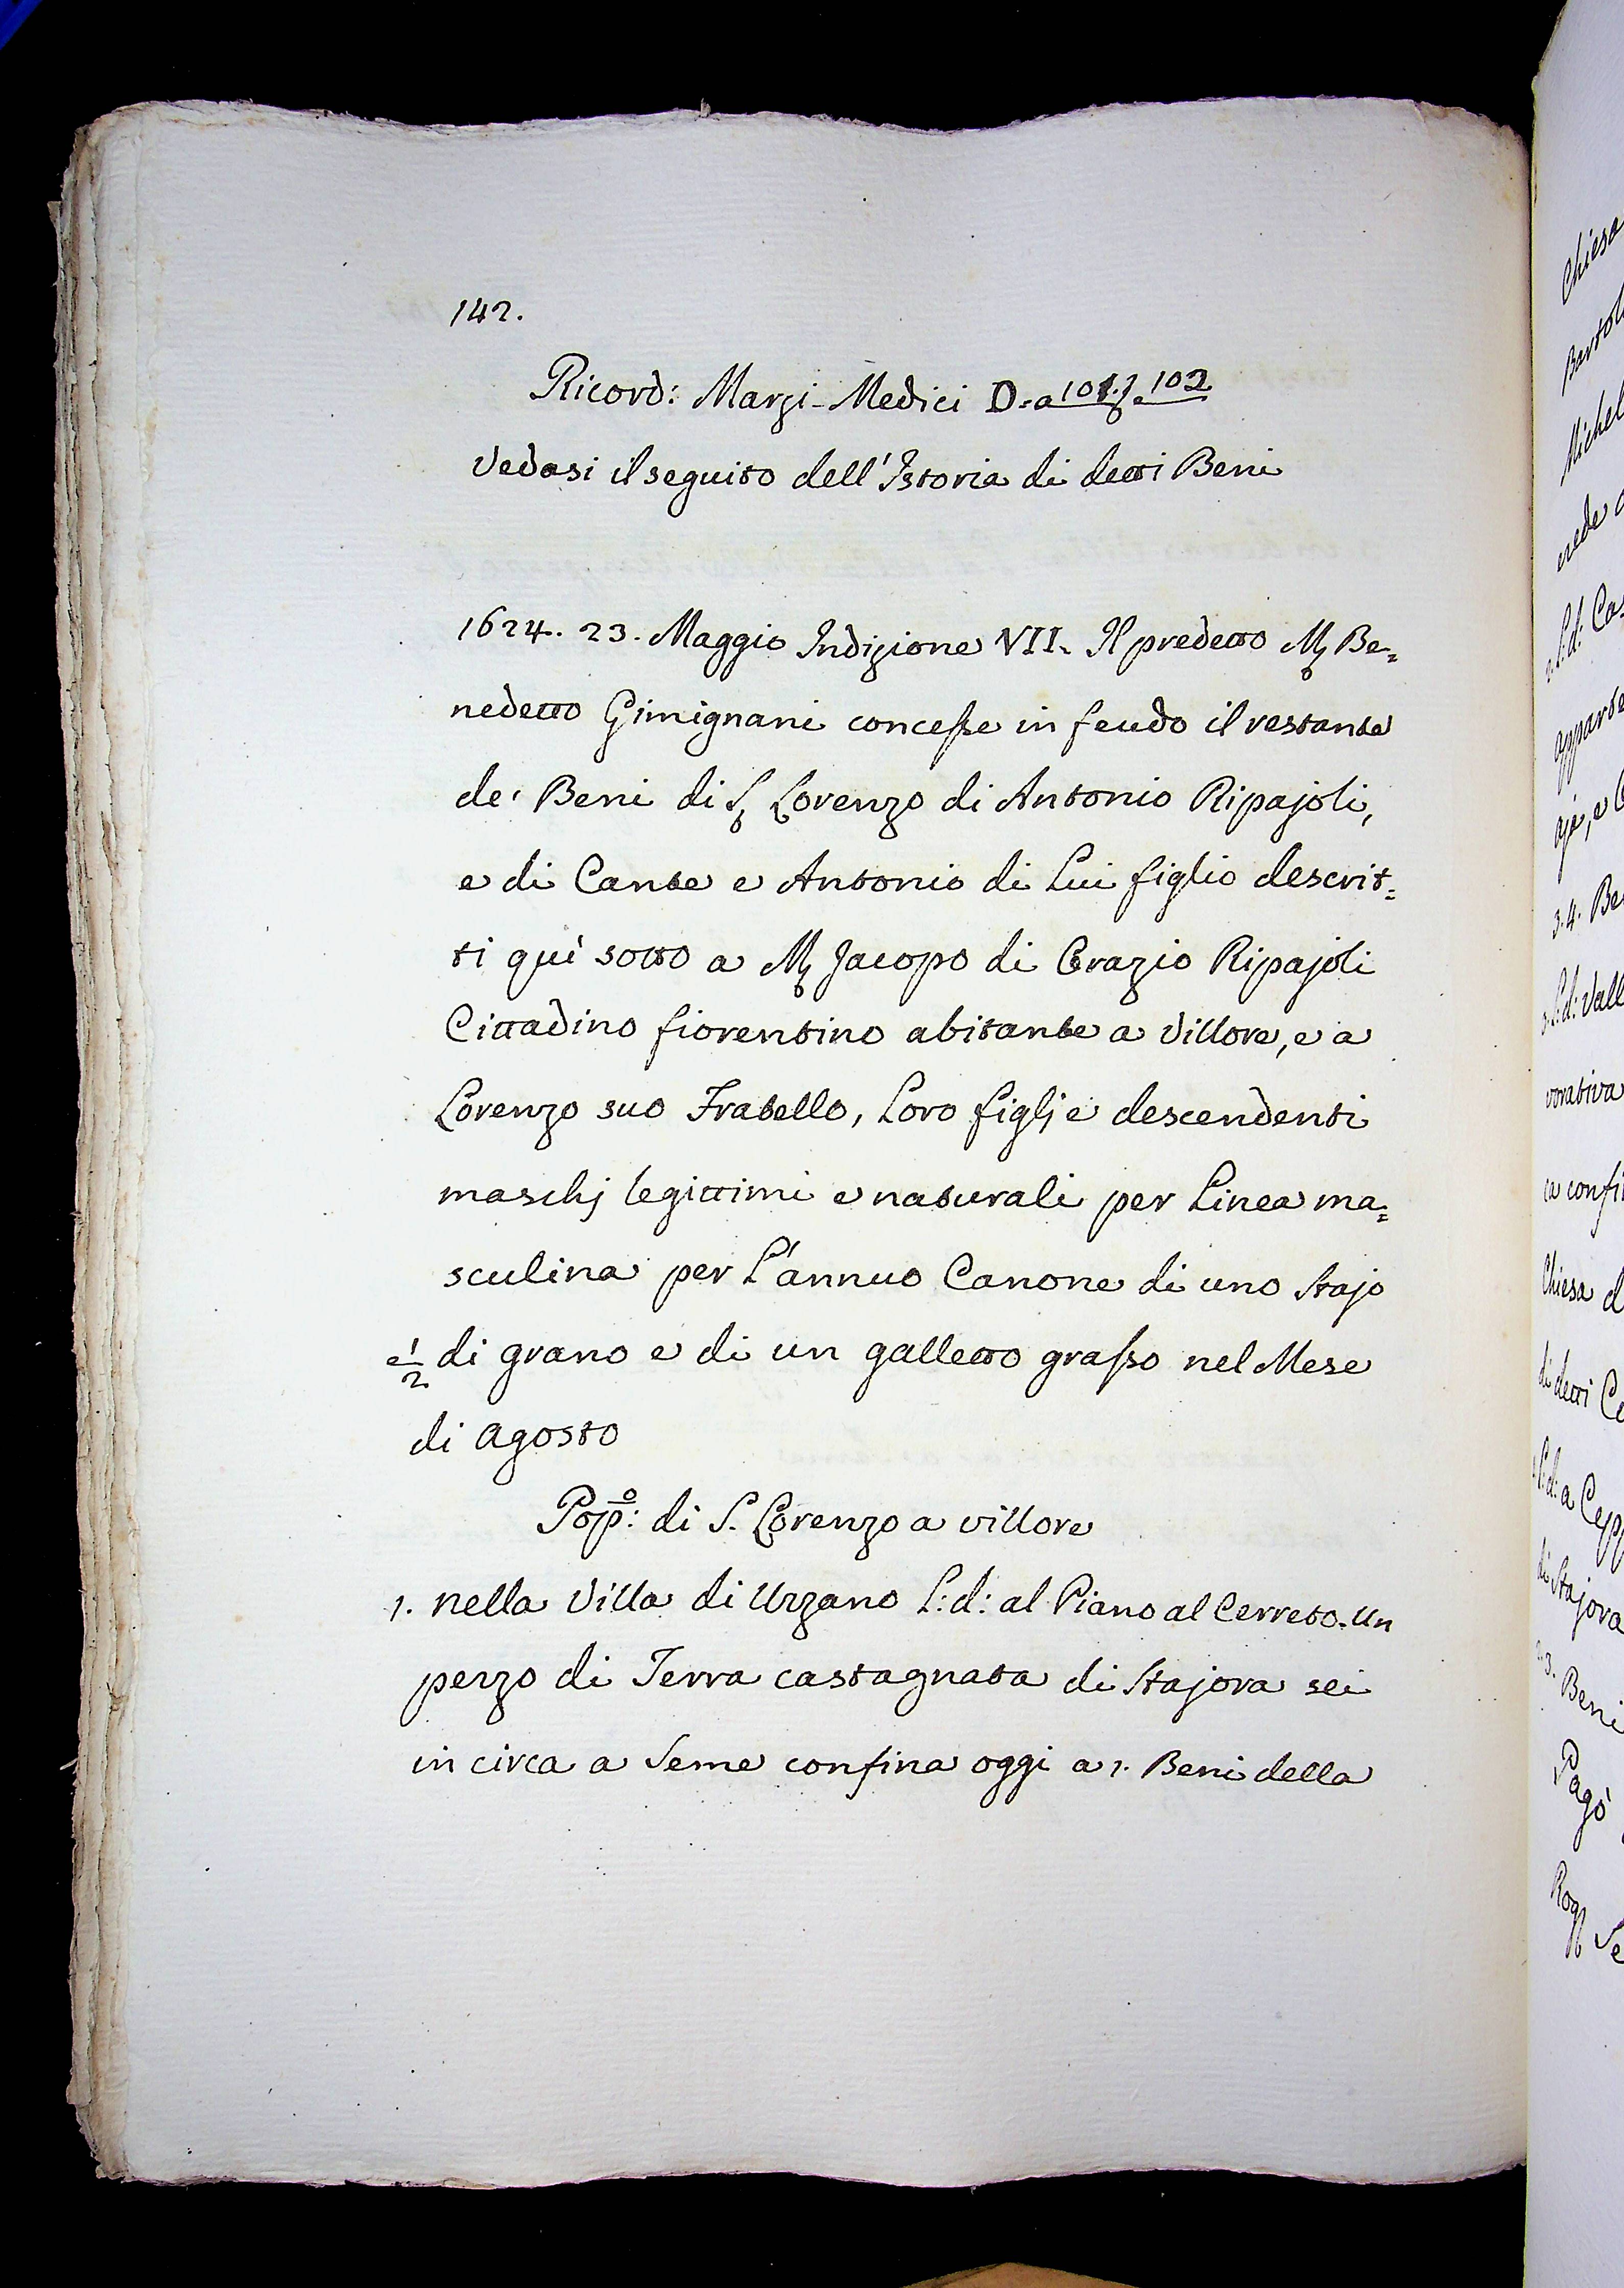 142.
Ricord: Marzi-Medici D.a 101. e 102
Vedasi il seguito dell'Istoria di detti Beni
1624. 23. Maggio Indizione VII. Il predetto M. Be=
nedetto Gimignani concesse in feudo il restante
de' Beni di S. Lorenzo di Antonio Ripajoli,
e di Cante e Antonio di Lui figlio descrit=
ti quì sotto a M. Jacopo di Orazio Ripajoli
Cittadino fiorentino abitante a Villore, e a
Lorenzo suo Fratello, Loro figlj e descendenti
maschj legittimi e naturali per Linea ma=
sculina per L'annuo Canone di uno Stajo
e 1/2 di grano e di un galletto grasso nel Mese
di Agosto
Pop.º: di S. Lorenzo a villore
1. nella Villa di Uzzano L: d: al Piano al Cerreto. Un
pezzo di Terra castagnata di Stajora sei
in circa a Seme confina oggi a 1. Beni della
Chiesa
Bartol
Michel
erede
L: d:
apparte
aje, e
3. 4. Be
L: d: Vall
vorativa
ca confi
Chiesa d
di detti Ce
L: d: a Cepp
di Stajora
3. Beni
Pagò
Rog Se